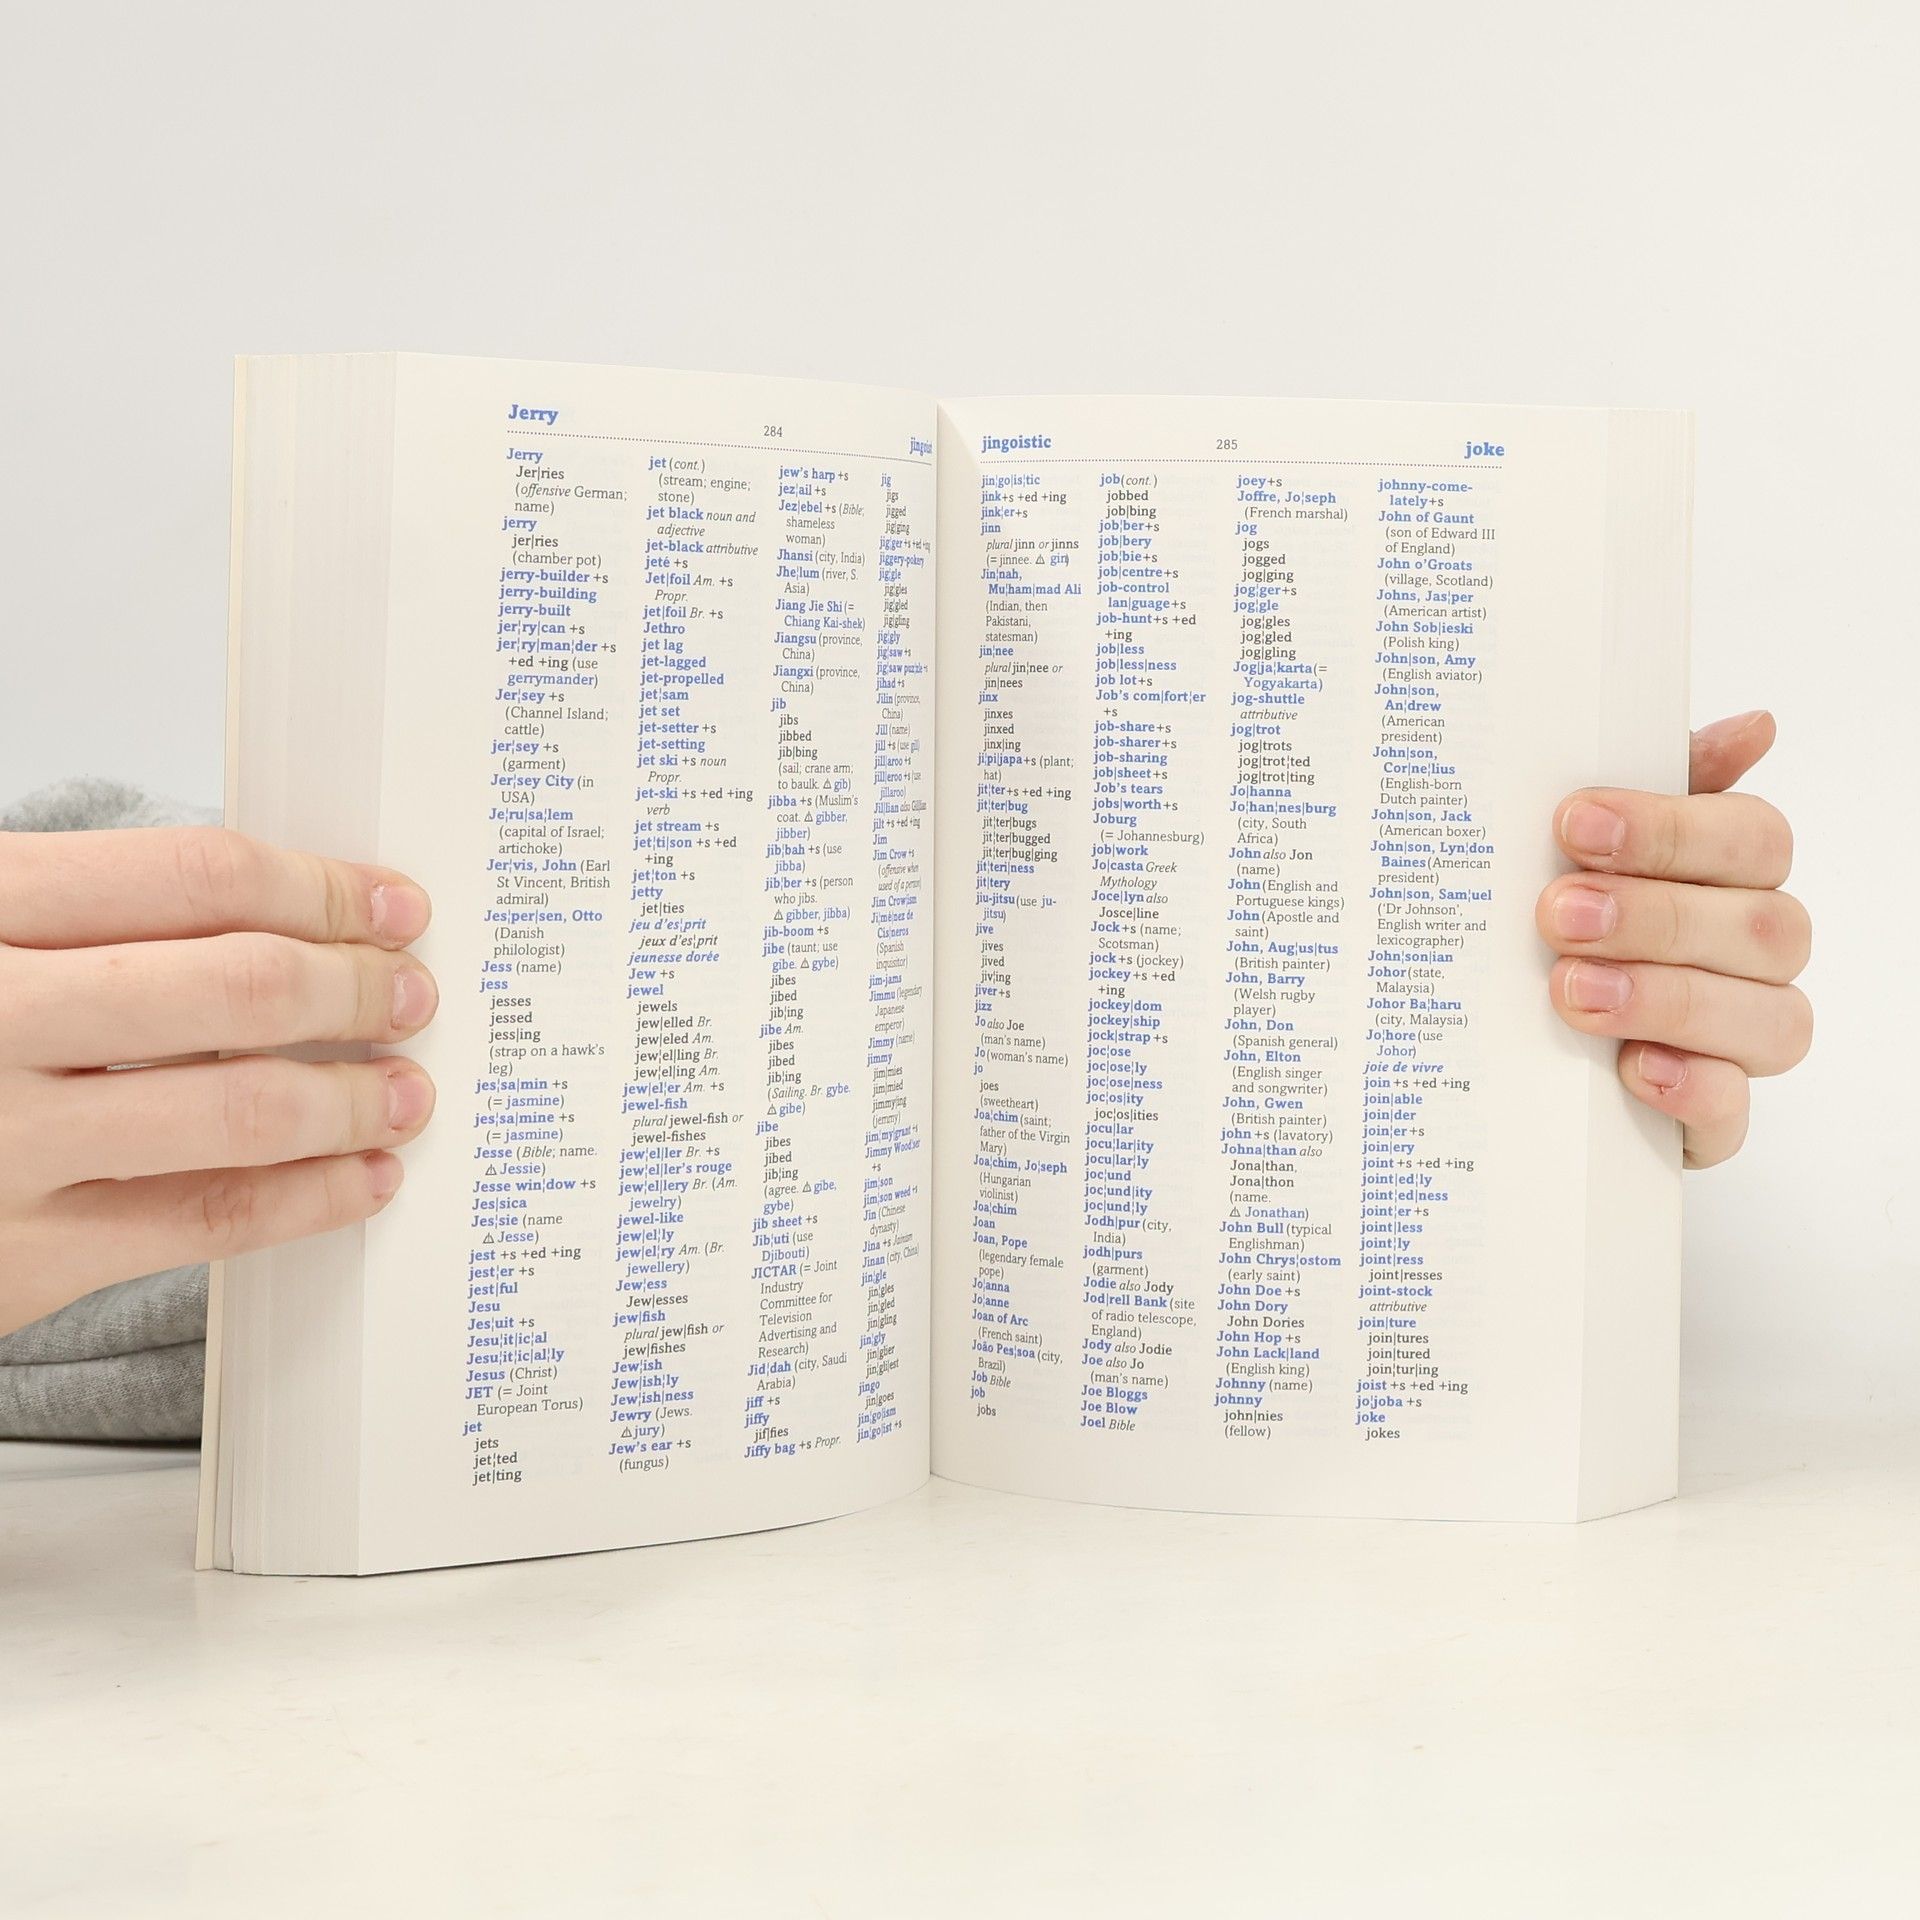 Jerry
284
jingoist
Jerry
Jer|ries
(offensive German;
name)
jerry
jer|ries
(chamber pot)
jerry-builder +s
jerry-building
jerry-built
jer¦ry|can +s
jer¦ry|man¦der +s
+ed +ing (use
gerrymander)
Jer¦sey +s
(Channel Island;
cattle)
jer¦sey +s
(garment)
Jer¦sey City (in
USA)
Je¦ru|sa¦lem
(capital of Israel;
artichoke)
Jer¦vis, John (Earl
St Vincent, British
admiral)
Jes¦per|sen, Otto
(Danish
philologist)
Jess (name)
jess
jesses
jessed
jess|ing
(strap on a hawk's
leg)
jes¦sa|min +s
(= jasmine)
jes¦sa|mine +s
(= jasmine)
Jesse (Bible; name.
⚠ Jessie)
Jesse win¦dow +s
Jes|sica
Jes¦sie (name
⚠ Jesse)
jest +s +ed +ing
jest¦er +s
jest|ful
Jesu
Jes¦uit +s
Jesu¦it¦ic|al
Jesu¦it¦ic|al¦ly
Jesus (Christ)
JET (= Joint
European Torus)
jet
jets
jet¦ted
jet|ting
jet (cont.)
(stream; engine;
stone)
jet black noun and
adjective
jet-black attributive
jeté +s
Jet|foil Am. +s
Propr.
jet|foil Br. +s
Jethro
jet lag
jet-lagged
jet-propelled
jet¦sam
jet set
jet-setter +s
jet-setting
jet ski +s noun
Propr.
jet-ski +s +ed +ing
verb
jet stream +s
jet¦ti|son +s +ed
+ing
jet¦ton +s
jetty
jet|ties
jeu d'es¦prit
jeux d'es¦prit
jeunesse dorée
Jew +s
jewel
jewels
jew|elled Br.
jew|eled Am.
jew¦el|ling Br.
jew¦el|ing Am.
jew¦el¦er Am. +s
jewel-fish
plural jewel-fish or
jewel-fishes
jew¦el|ler Br. +s
jew¦el|ler's rouge
jew¦el|lery Br. (Am.
jewelry)
jewel-like
jew¦el¦ly
jew¦el¦ry Am. (Br.
jewellery)
Jew¦ess
Jew|esses
jew|fish
plural jew|fish or
jew|fishes
Jew¦ish
Jew|ish¦ly
Jew|ish|ness
Jewry (Jews.
⚠ jury)
Jew's ear +s
(fungus)
jew's harp +s
jez¦ail +s
Jez|ebel +s (Bible;
shameless
woman)
Jhansi (city, India)
Jhe¦lum (river, S.
Asia)
Jiang Jie Shi (=
Chiang Kai-shek)
Jiangsu (province,
China)
Jiangxi (province,
China)
jib
jibs
jibbed
jib|bing
(sail; crane arm;
to baulk. ⚠ gib)
jibba +s (Muslim's
coat. ⚠ gibber,
jibber)
jib¦bah +s (use
jibba)
jib¦ber +s (person
who jibs.
⚠ gibber, jibba)
jib-boom +s
jibe (taunt; use
gibe. ⚠ gybe)
jibes
jibed
jib¦ing
jibe Am.
jibes
jibed
jib¦ing
(Sailing. Br. gybe.
⚠ gibe)
jibe
jibes
jibed
jib¦ing
(agree. ⚠ gibe,
gybe)
jib sheet +s
Jib¦uti (use
Djibouti)
JICTAR (= Joint
Industry
Committee for
Television
Advertising and
Research)
Jid¦dah (city, Saudi
Arabia)
jiff +s
jiffy
jif|fies
Jiffy bag +s Propr.
jig
jigs
jigged
jig|ging
jig|ger +s +ed +ing
jiggery-pokery
jig¦gle
jig|gles
jig|gled
jig|gling
jig¦gly
jig¦saw +s
jig¦saw puzzle +s
jihad +s
Jilin (province,
China)
Jill (name)
jill +s (use gill)
jill|aroo +s
jill|eroo +s (use
jillaroo)
Jil|lian also Gillian
jilt +s +ed +ing
Jim
Jim Crow +s
(offensive when
used of a person)
Jim Crow|ism
Ji¦mé¦nez de
Cis|neros
(Spanish
inquisitor)
jim-jams
Jimmu (legendary
Japanese
emperor)
Jimmy (name)
jimmy
jim|mies
jim|mied
jimmy|ing
(jemmy)
jim|my|grant +s
Jimmy Wood¦ser
+s
jim¦son
jim¦son weed +s
Jin (Chinese
dynasty)
Jina +s Jainism
Jinan (city, China)
jin¦gle
jin|gles
jin|gled
jin|gling
jin¦gly
jin|glier
jin|gli|est
jingo
jin|goes
jin¦go|ism
jin¦go|ist +s
jingoistic
285
joke
jin¦go|is¦tic
jink+s +ed +ing
jink¦er+s
jinn
plural jinn or jinns
(= jinnee. ⚠ gin)
Jin¦nah,
Mu¦ham|mad Ali
(Indian, then
Pakistani,
statesman)
jin¦nee
plural jin¦nee or
jin|nees
jinx
jinxes
jinxed
jinx|ing
ji¦pi|japa+s (plant;
hat)
jit¦ter+s +ed +ing
jit¦ter|bug
jit¦ter|bugs
jit¦ter|bugged
jit¦ter|bug|ging
jit¦teri|ness
jit|tery
jiu-jitsu (use ju-
jitsu)
jive
jives
jived
jiv|ing
jiver+s
jizz
Jo also Joe
(man's name)
Jo (woman's name)
jo
joes
(sweetheart)
Joa¦chim (saint;
father of the Virgin
Mary)
Joa¦chim, Jo¦seph
(Hungarian
violinist)
Joa¦chim
Joan
Joan, Pope
(legendary female
pope)
Jo¦anna
Jo¦anne
Joan of Arc
(French saint)
João Pes¦soa (city,
Brazil)
Job Bible
job
jobs
job (cont.)
jobbed
job|bing
job¦ber+s
job|bery
job¦bie+s
job|centre+s
job-control
lan|guage+s
job-hunt+s +ed
+ing
job|less
job|less|ness
job lot+s
Job's com|fort¦er
+s
job-share+s
job-sharer+s
job-sharing
job|sheet+s
Job's tears
jobs|worth+s
Joburg
(= Johannesburg)
job|work
Jo|casta Greek
Mythology
Joce|lyn also
Josce|line
Jock+s (name;
Scotsman)
jock+s (jockey)
jockey+s +ed
+ing
jockey|dom
jockey|ship
jock|strap +s
joc¦ose
joc¦ose¦ly
joc¦ose|ness
joc¦os|ity
joc¦os|ities
jocu|lar
jocu|lar|ity
jocu|lar¦ly
joc¦und
joc¦und|ity
joc¦und¦ly
Jodh|pur (city,
India)
jodh|purs
(garment)
Jodie also Jody
Jod|rell Bank (site
of radio telescope,
England)
Jody also Jodie
Joe also Jo
(man's name)
Joe Bloggs
Joe Blow
Joel Bible
joey+s
Joffre, Jo¦seph
(French marshal)
jog
jogs
jogged
jog|ging
jog¦ger+s
jog¦gle
jog|gles
jog|gled
jog|gling
Jog|ja¦karta (=
Yogyakarta)
jog-shuttle
attributive
jog|trot
jog|trots
jog|trot¦ted
jog|trot|ting
Jo|hanna
Jo¦han¦nes|burg
(city, South
Africa)
John also Jon
(name)
John (English and
Portuguese kings)
John (Apostle and
saint)
John, Aug¦us¦tus
(British painter)
John, Barry
(Welsh rugby
player)
John, Don
(Spanish general)
John, Elton
(English singer
and songwriter)
John, Gwen
(British painter)
john +s (lavatory)
Johna|than also
Jona|than,
Jona|thon
(name.
⚠ Jonathan)
John Bull (typical
Englishman)
John Chrys¦ostom
(early saint)
John Doe +s
John Dory
John Dories
John Hop +s
John Lack|land
(English king)
Johnny (name)
johnny
john|nies
(fellow)
johnny-come-
lately+s
John of Gaunt
(son of Edward III
of England)
John o'Groats
(village, Scotland)
Johns, Jas¦per
(American artist)
John Sob|ieski
(Polish king)
John|son, Amy
(English aviator)
John|son,
An¦drew
(American
president)
John|son,
Cor|ne¦lius
(English-born
Dutch painter)
John|son, Jack
(American boxer)
John|son, Lyn¦don
Baines (American
president)
John|son, Sam¦uel
('Dr Johnson',
English writer and
lexicographer)
John|son|ian
Johor (state,
Malaysia)
Johor Ba¦haru
(city, Malaysia)
Jo¦hore (use
Johor)
joie de vivre
join +s +ed +ing
join|able
join|der
join¦er +s
join|ery
joint +s +ed +ing
joint|ed¦ly
joint¦ed|ness
joint¦er +s
joint|less
joint¦ly
joint|ress
joint|resses
joint-stock
attributive
join|ture
join|tures
join|tured
join¦tur|ing
joist +s +ed +ing
jo¦joba +s
joke
jokes